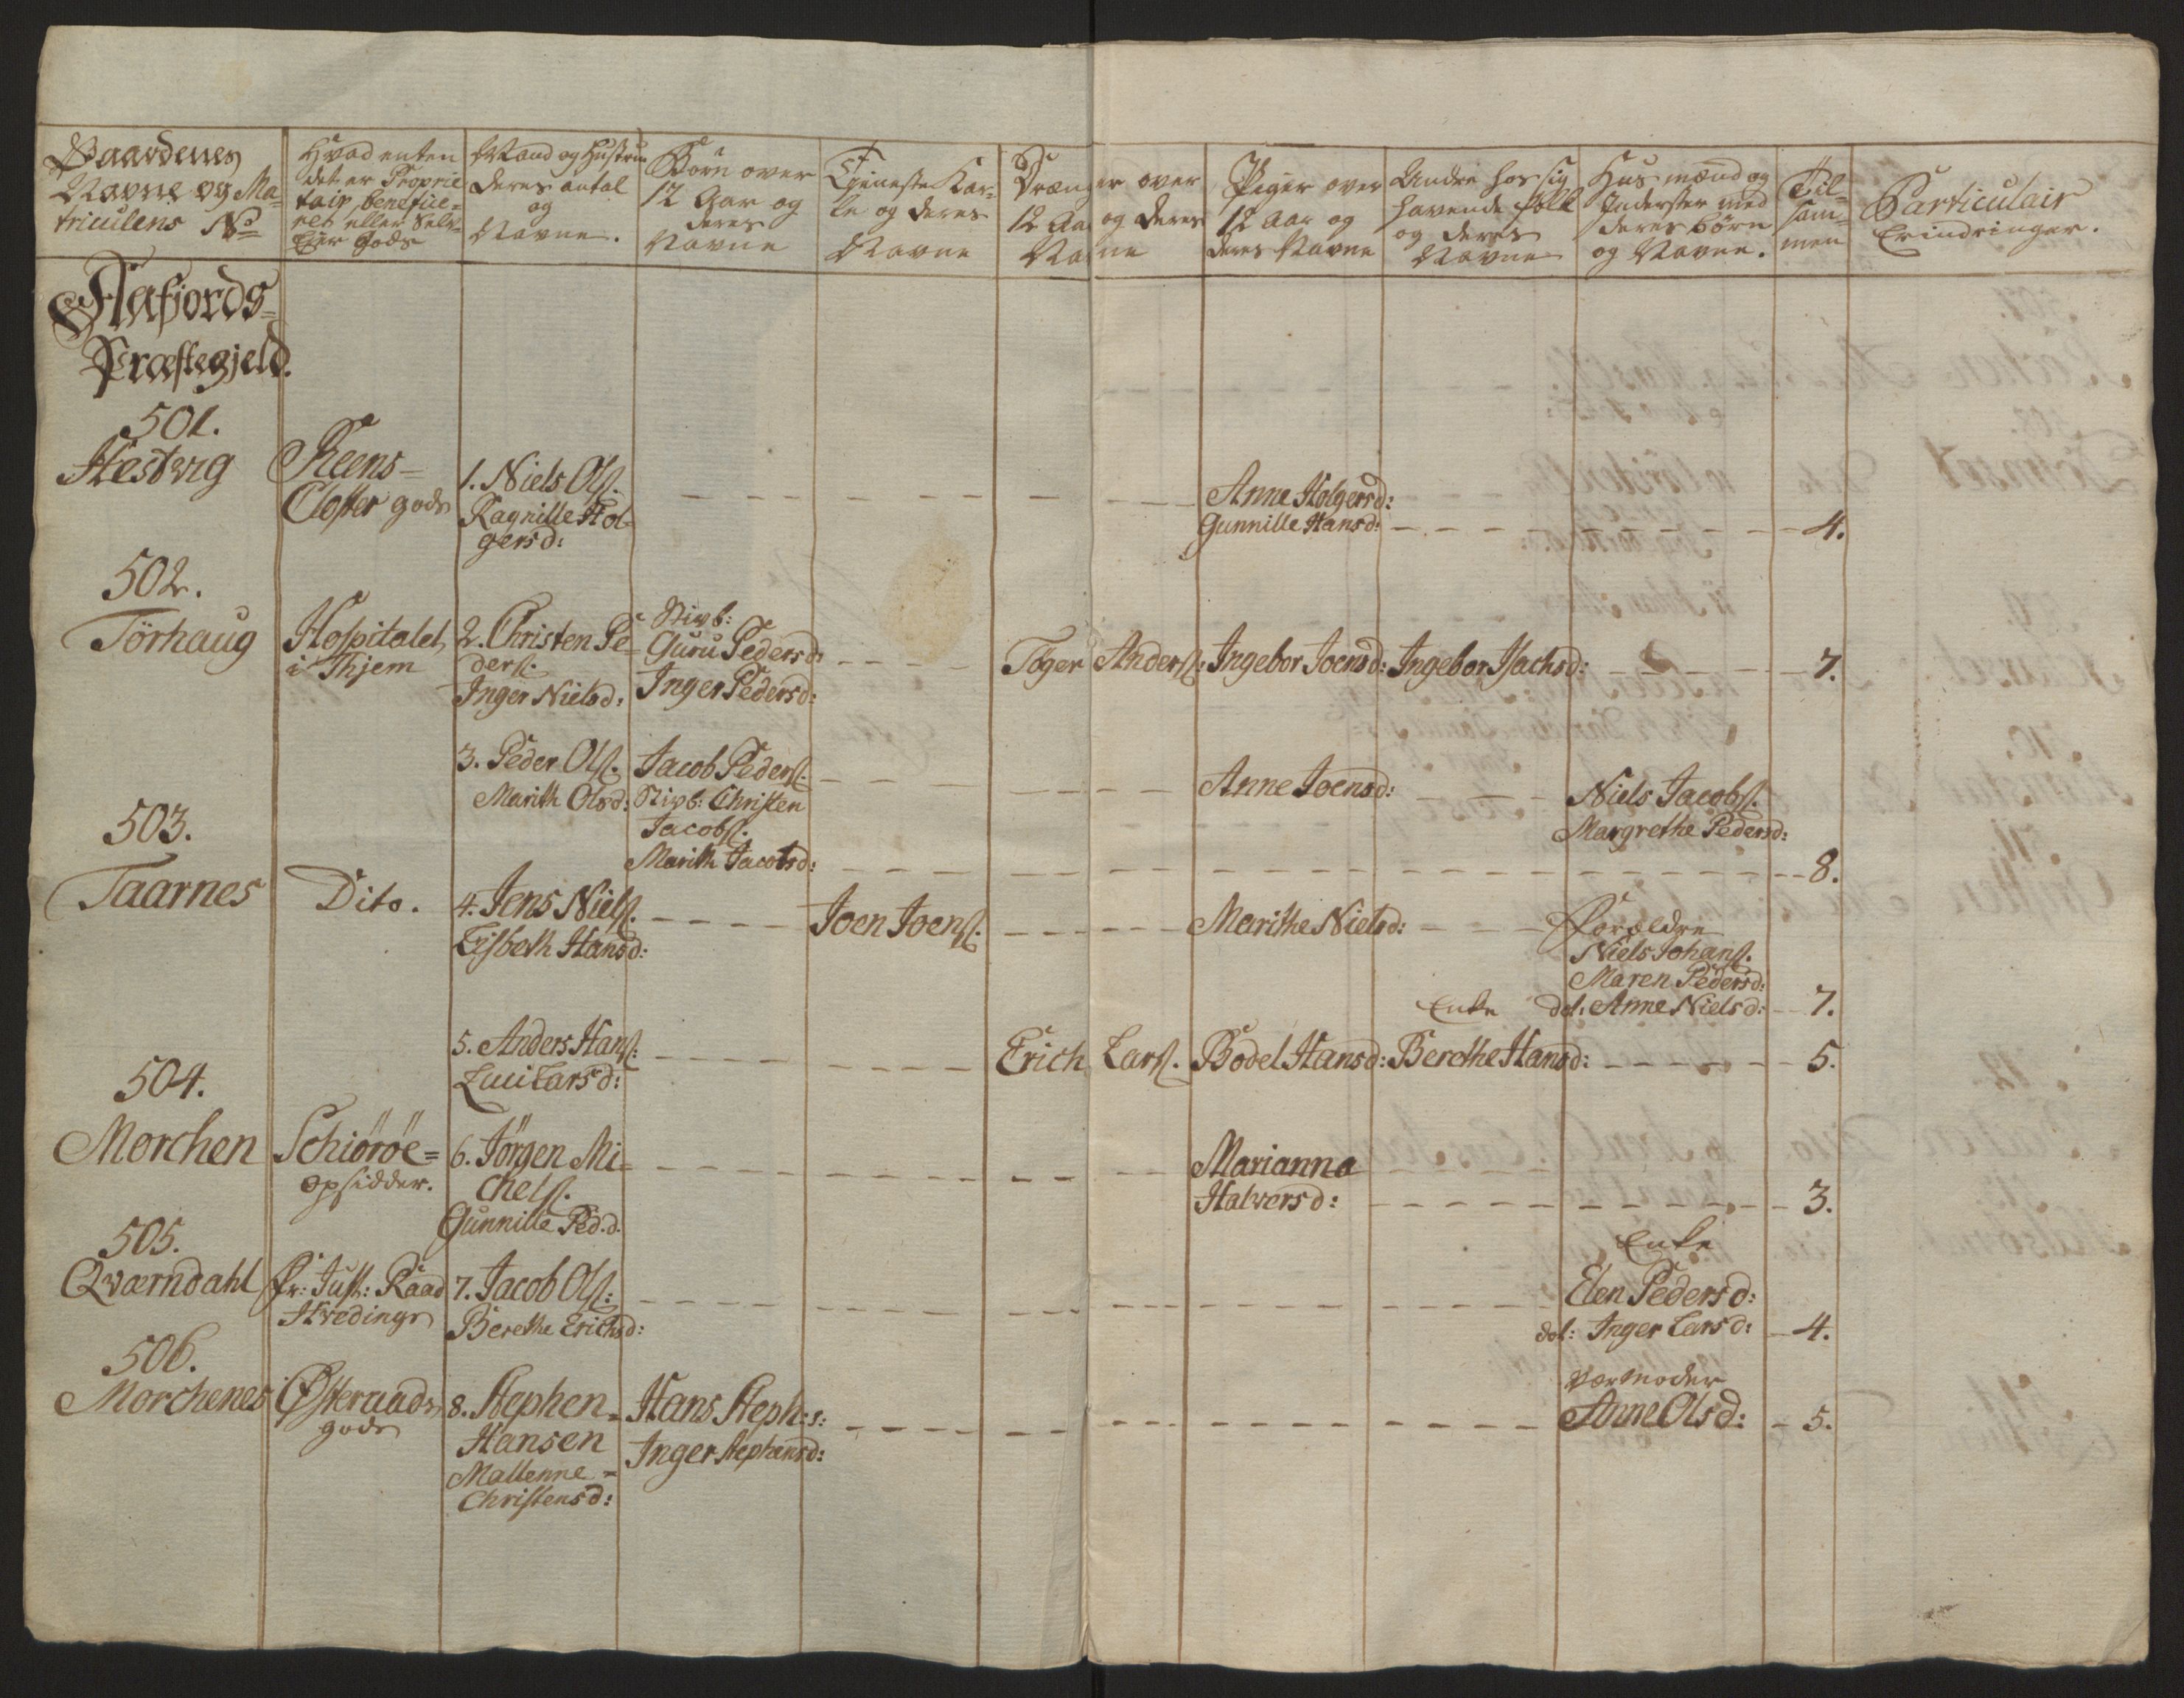 Gaardenes
Navne og Ma=
triculens No
Hvad enten
det er Proprie
tair, benefice=
ret eller Selv=
Eier Gods
Mand og Hustrue
deres antal
og
Navne.
Børn over
12 Aar og
deres
Navne
Tieneste Kar=
le og deres
Navne
Drænger over
12 Aar og deres
Navne
Piger over
12 Aar og
deres Navne
Andre hos sig
havende folk
og deres
Navne
Huusmænd og
Inderster med
deres børn
og Navne.
Til=
sam=
men
Particulair
Erindringer.
Aafjords=
Præstegjeld.
501.
Hestvig
Reens=
Closter gods
1. Niels Olß.
Ragnille Hol=
gersd:
Anne Holgersd:
Gunnille Hansd:
4.
502.
Törhaug
Hospitalet
i Thjem
2. Christen Pe=
derß.
Inger Nielsd:
Stivb:
Guru Pedersd:
Inger Pedersd:
Töger Anderß:
Ingebor Joensd:
Ingebor Isachsd:
7.
3. Peder Olß.
Marith Olsd:
Jacob Pederß.
Stivb: Christen
Jacobß.
Marith Jacobsd:
Anne Joensd:
Niels Jacobß.
Margrethe Pedersd:
8.
503.
Taarnes
Dito.
4. Jens Nielß.
Lisbeth Hansd:
Joen Joenß.
Marithe Nielsd:
Forældre
Niels Johanß.
Maren Pedersd:
Enke
dot: Anne Nielsd:
7.
5. Anders Hanß:
Luci Larsd:
Erich Larß.
Bodel Hansd:
Berethe Hansd:
5.
504.
Morchen
Schiöröe=
opsidder.
6. Jörgen Mi=
chelß.
Gunnille Ped.d.
Marianna
Halversd:
3.
505.
Qværndahl
Hr: Just: Raad
Hvedings
7. Jacob Olß:
Berethe Erichsd:
Enke
Elen Pedersd:
dot: Inger Larsd:
4.
506.
Morchenes
Østeraads
gods
8. Stephen=
Hansen
Mallenne=
Christensd:
Hans Steph:s:
Inger Stephensd:
Værmoder
Anne Olsd:
5.